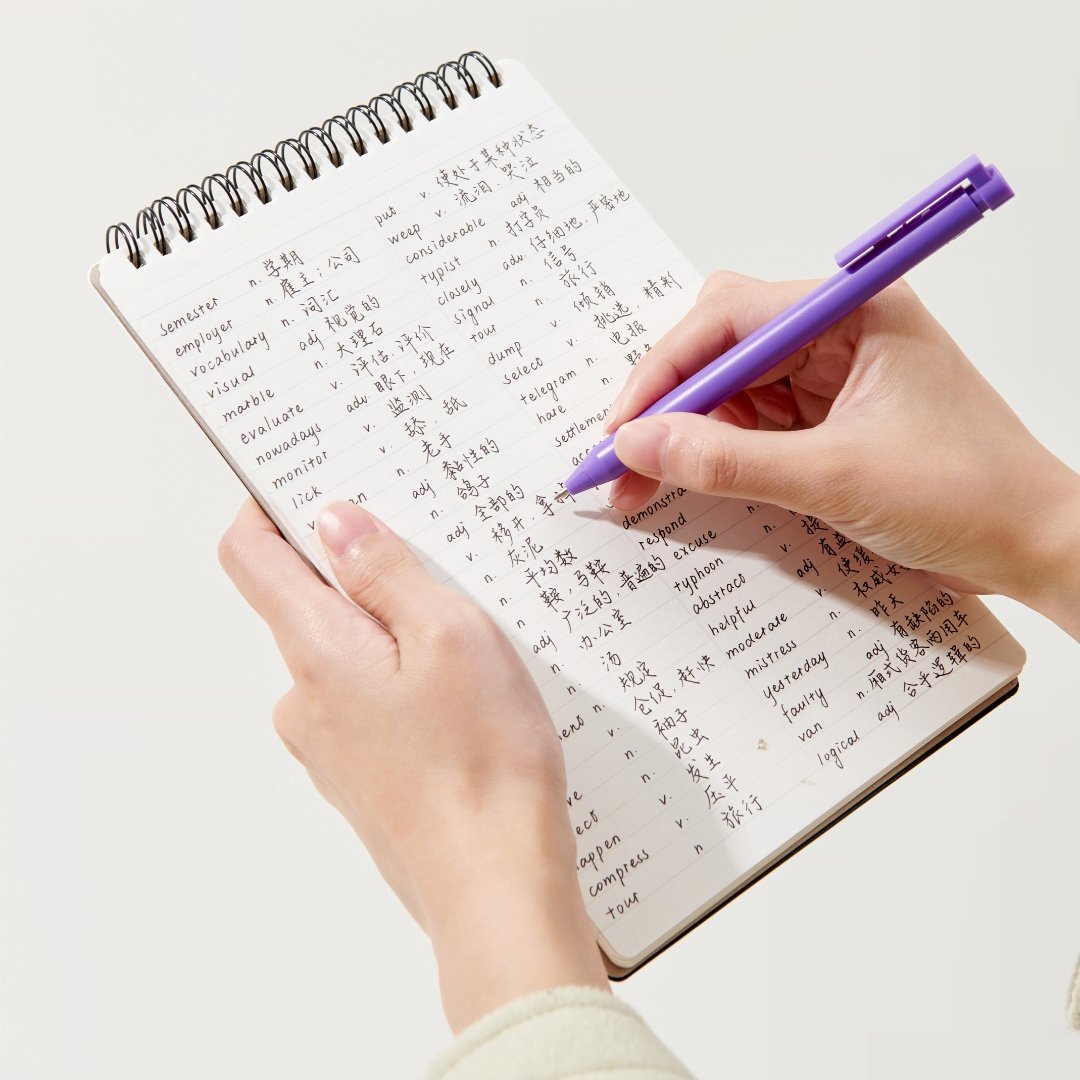 semester n. 学期
employer n. 雇主；公司
vocabulary n. 词汇
visual adj 视觉的
marble n. 大理石
evaluate v. 评估，评价
nowadays adv. 眼下，现在
monitor v. 监测
lick v. 舔，舐
n. 老手
adj 黏性的
n. 鸽子
adj 全部的
v. 移开，拿
n. 灰泥
n. 平均数
n 鞍，马鞍
adj 广泛的，普遍的
n. 办公室
n. 汤
n. 规定
v. 仓促，赶快
n. 袖子
n. 昆虫
v. 发生
compress v. 压平
tour n 旅行
put v. 使处于某种状态
weep v. 流泪，哭泣
considerable adj 相当的
typist n. 打字员
closely adv. 仔细地，严密地
signal n. 信号
tour n. 旅行
dump v. 倾销
select 挑选，精料
telegram n. 电报
hare n.
respond
excuse n.
typhoon n.
abstract v. 提
helpful adj 有益
moderate v. 使缓
mistress n.
yesterday n. 昨天
faulty adj 有缺陷的
van n. 厢式货客两用车
logical adj 合乎逻辑的